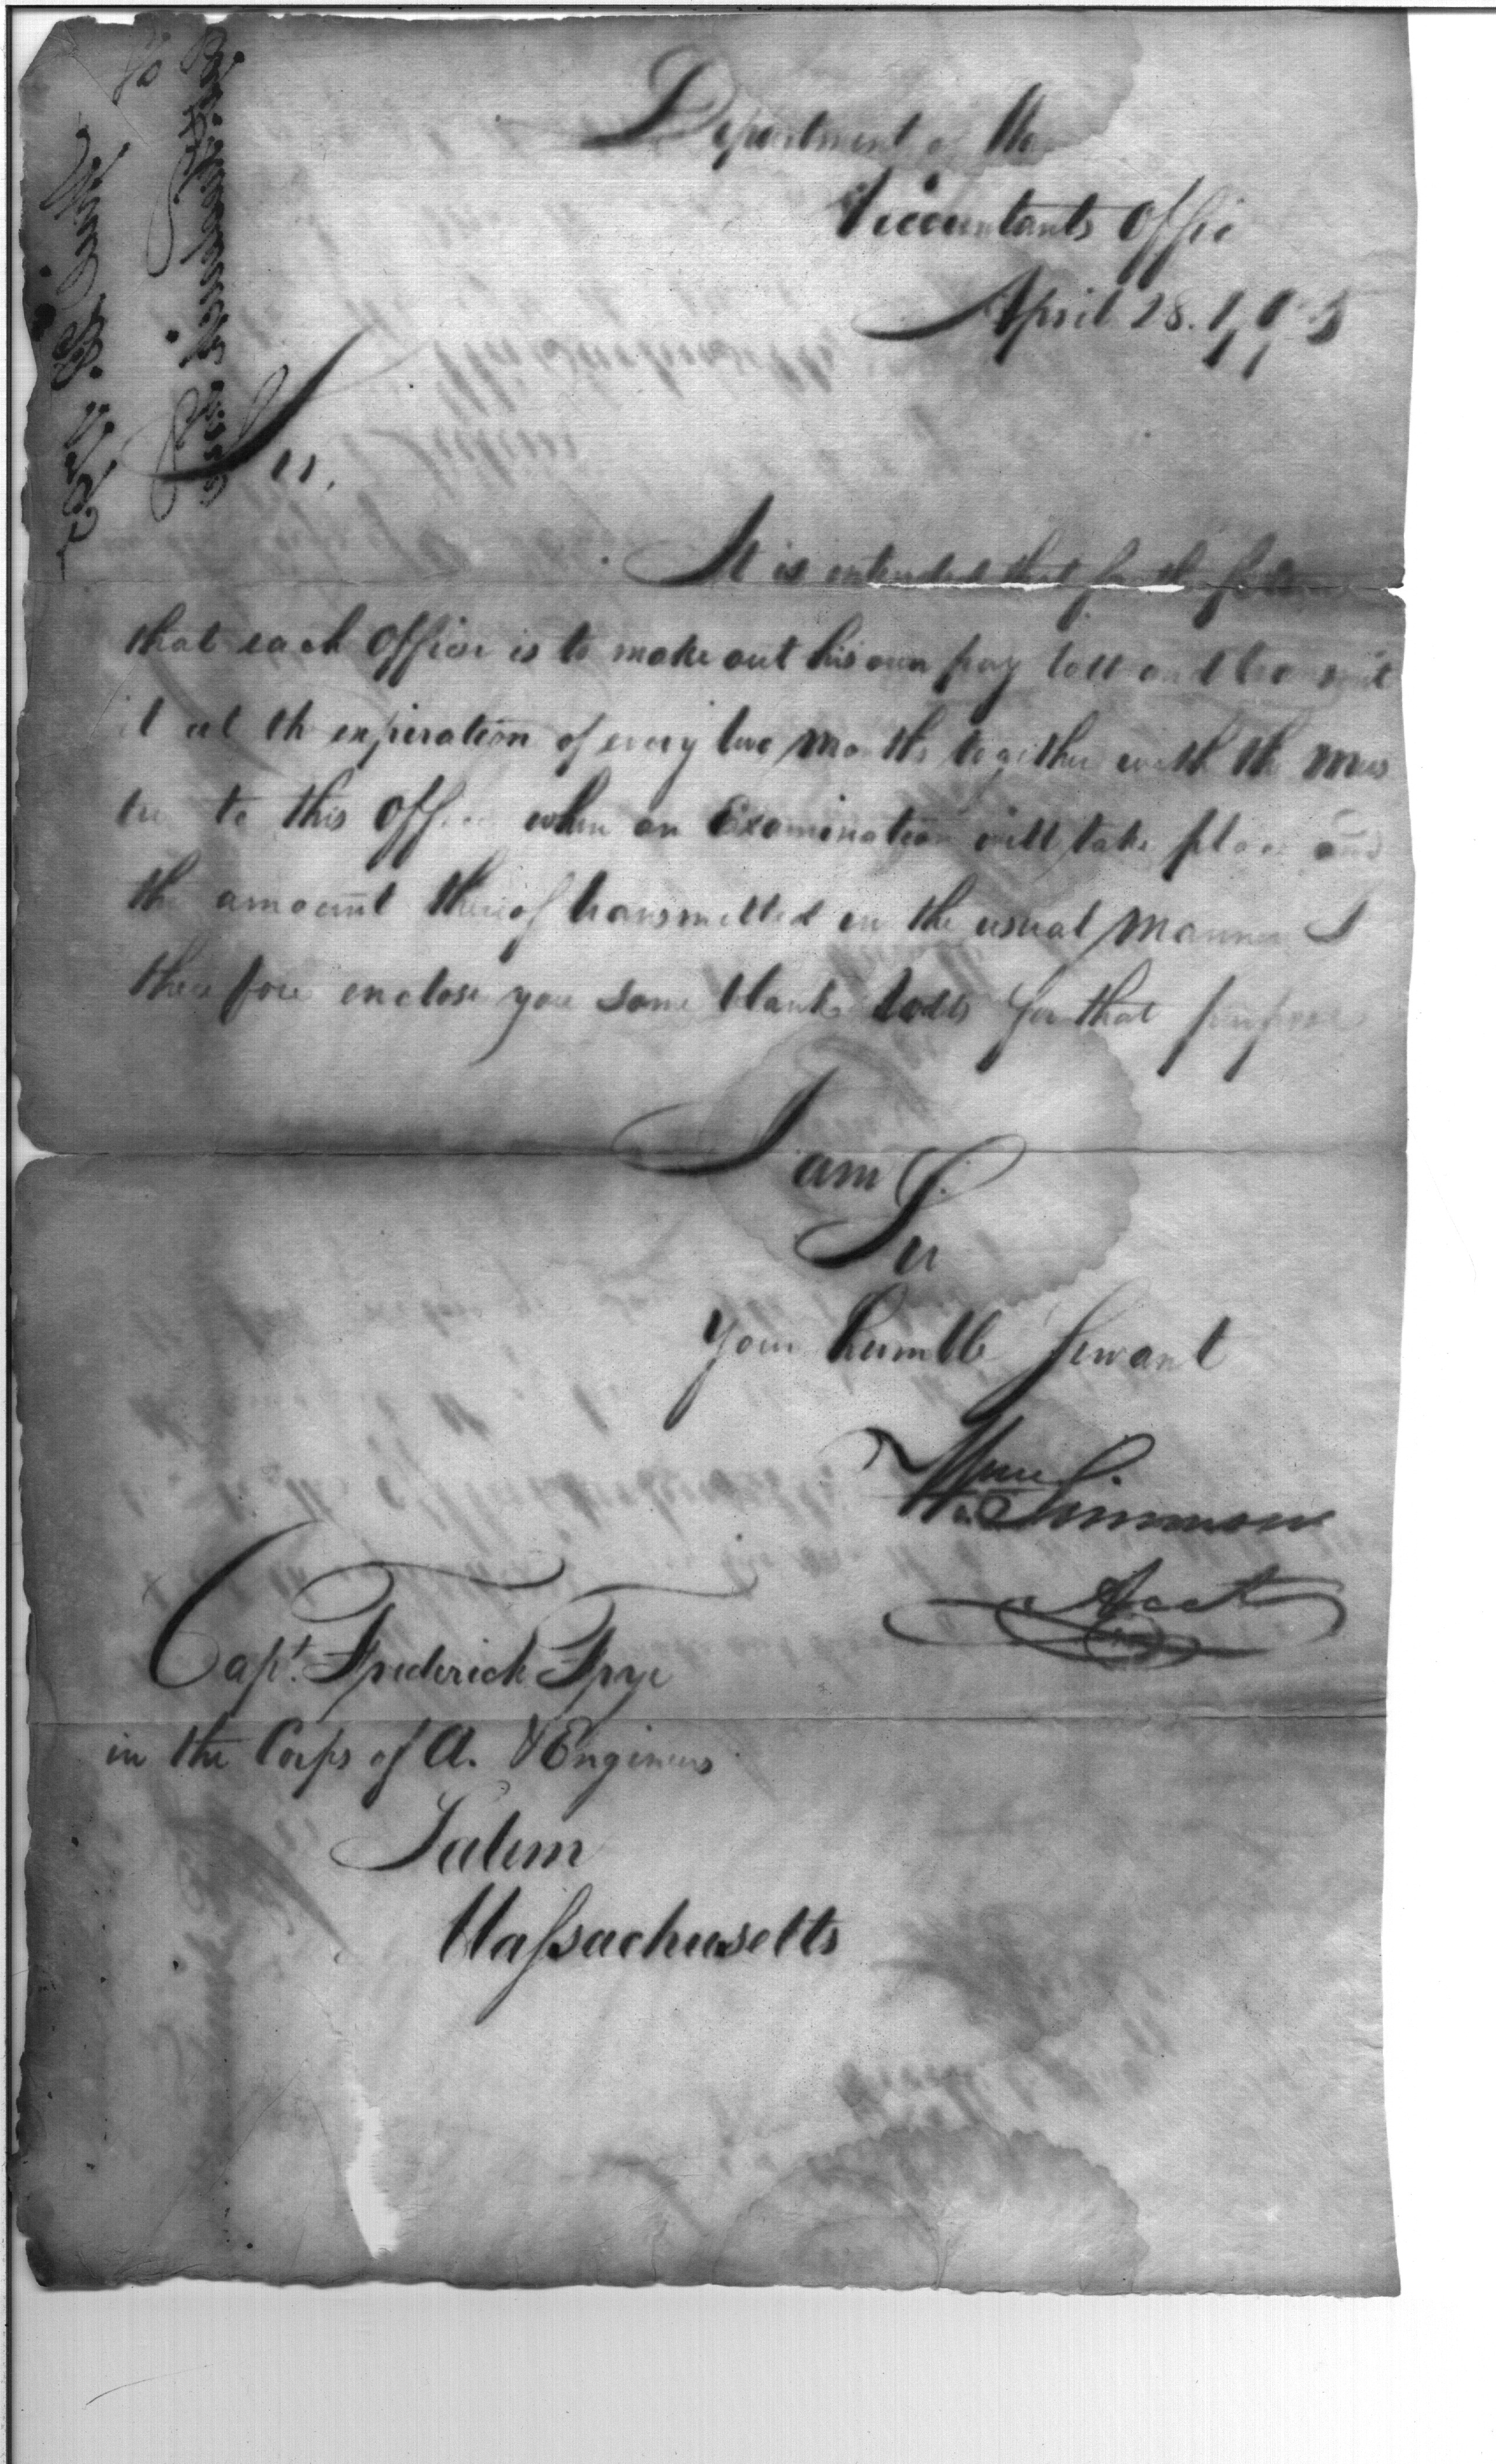 Department of War
Accountants Office
April 28. 1795
Sir,
It is intended that for the future
that each Officer is to make out his own pay roll and transmit
it at the expiration of every two Months together with the Mus
ter to this Office when an Examination will take place and
the amount thereof transmitted in the usual Manner I
therefore enclose you some blank rolls for that purpose
I am
Sir
Your humble Servant
Wm Simmons
Acct
Capt. Frederick Frye
in the Corps of A. & Engineers
Salem
Massachusetts